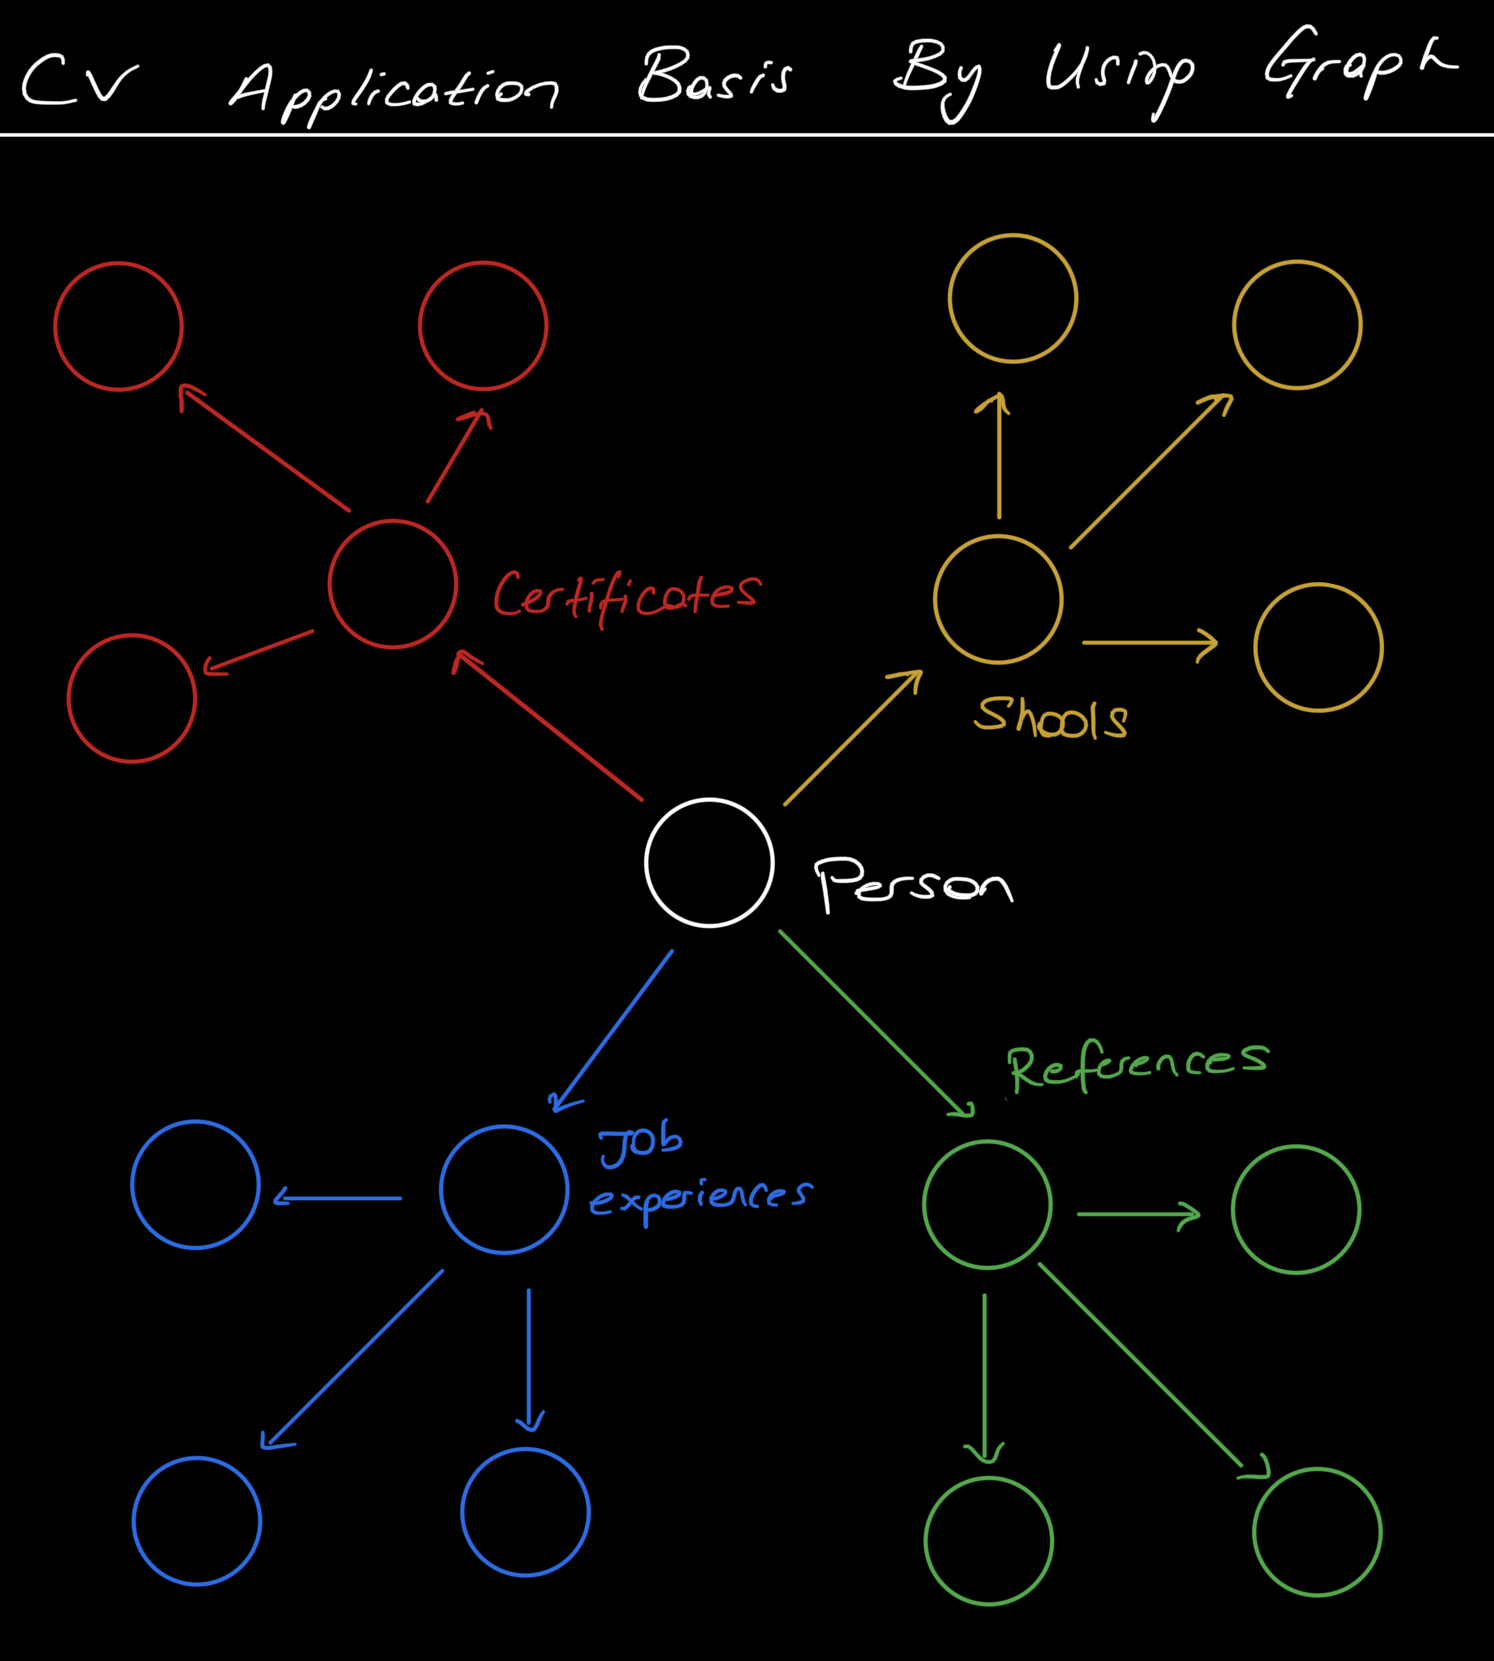 CV Application Basis By Using Graph
Certificates
Shools
Person
References
Job
experiences